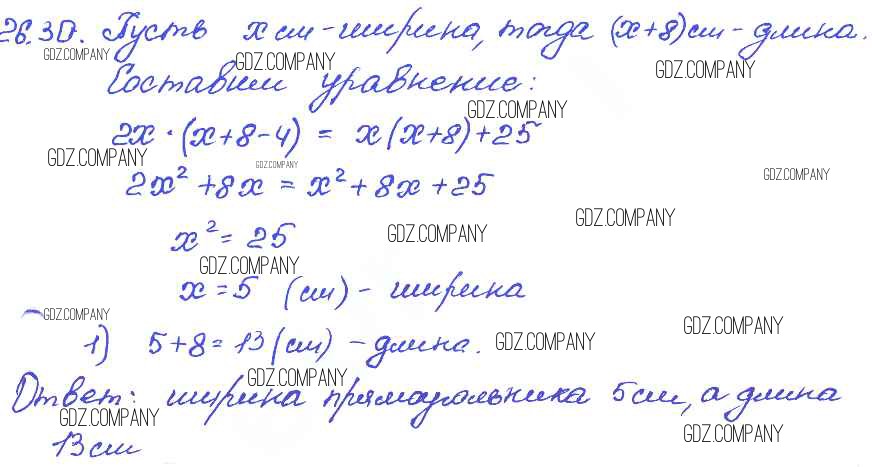 26.30. Пусть x см - ширина, тогда (x+8)см - длина.
GDZ.COMPANY
GDZ.COMPANY
GDZ.COMPANY
Составим уравнение:
GDZ.COMPANY
2x · (x+8-4) = x(x+8)+25
GDZ.COMPANY
GDZ.COMPANY
GDZ.COMPANY
2x² + 8x = x² + 8x + 25
GDZ.COMPANY
x² = 25
GDZ.COMPANY
GDZ.COMPANY
x = 5 (см) - ширина
GDZ.COMPANY
GDZ.COMPANY
1) 5+8=13 (см) - длина.
GDZ.COMPANY
GDZ.COMPANY
Ответ: ширина прямоугольника 5см, а длина
GDZ.COMPANY
GDZ.COMPANY
13см